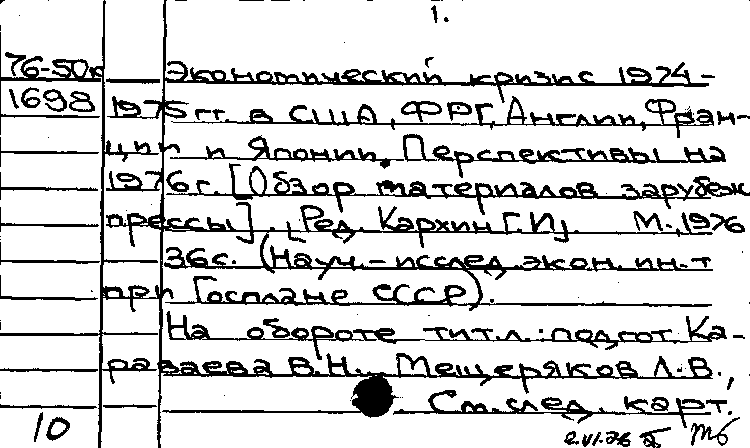 1.
76-50к
1698
Экономический кризис 1974-
1975 гг. в США, ФРГ, Англии, Фран-
ции и Японии. Перспективы на
1976 г. [Обзор материалов зарубеж.
прессы]. [Ред. Кархин Г.И]. М., 1976
36с. (Науч.-исслед. экон. ин-т
при Госплане СССР).
На обороте тит.л.: подгот. Ка-
раваева В.Н., Мещеряков Л.В.,
См. след. карт.
10
2.VI.76